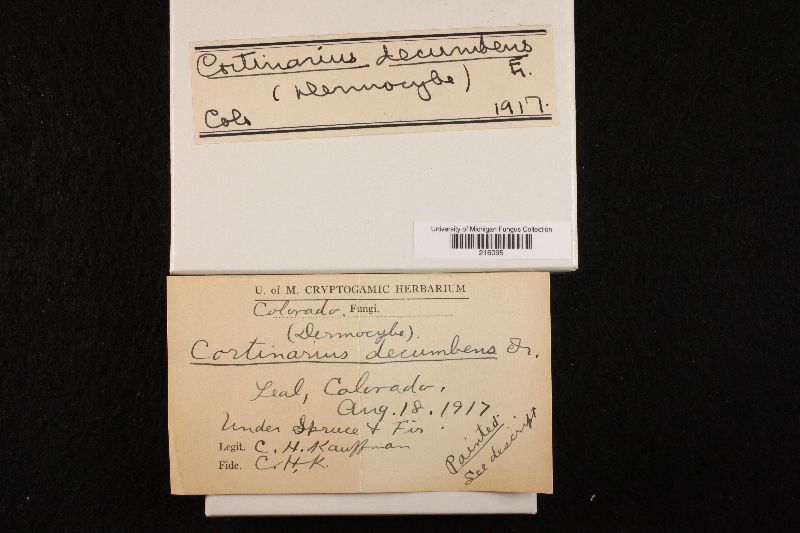 Cortinarius decumbens
(Dermocybe) Fr.
Colo 1917.
University of Michigan Fungus Collection
216095
U. of M. CRYPTOGAMIC HERBARIUM
Colorado. Fungi.
(Dermocybe).
Cortinarius decumbens Fr.
Leal, Colorado.
Aug. 18. 1917
Under Spruce & Fir.
Legit. C. H. Kauffman
Fide. C.H.K.
Painted.
See descript